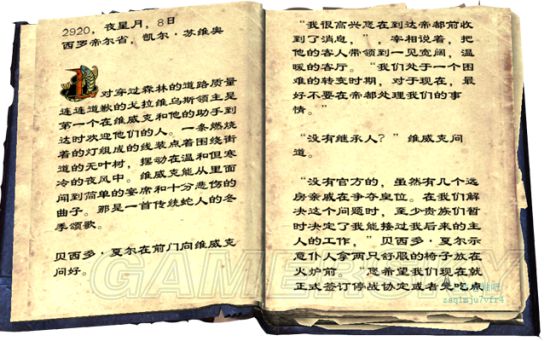 2920，夜星月，8日
西罗帝尔省，凯尔·苏维奥
对穿过森林的道路质量
连连道歉的戈拉维乌斯领主是
第一个在维威克和他的助手到
达时欢迎他们的人。一条燃烧
着的灯组成的线装点着围绕街
道的无叶树，摆动在温和但寒
冷的夜风中。维威克能从里面
闻到简单的宴席和十分悲伤的
曲子。那是一首传统蛇人的冬
季颂歌。
贝西多·夏尔在前门向维威克
问好。
“我很高兴您在到达帝都前收
到了消息，”宰相说着，把
他的客人带领到一见宽阔，温
暖的客厅。“我们处于一个困
难的转变时期，对于现在，最
好不要在帝都处理我们的事
情。”
“没有继承人？”维威克问
道。
“没有官方的，虽然有几个远
房亲戚在争夺皇位。在我们解
决这个问题时，至少贵族们暂
时决定了我能接过我后来的主
人的工作，”贝西多·夏尔示
意仆人拿两只舒服的椅子放在
火炉前。“您希望我们现在就
正式签订停战协定或者先吃点
GAMERSKY
zaqimju7vfr4